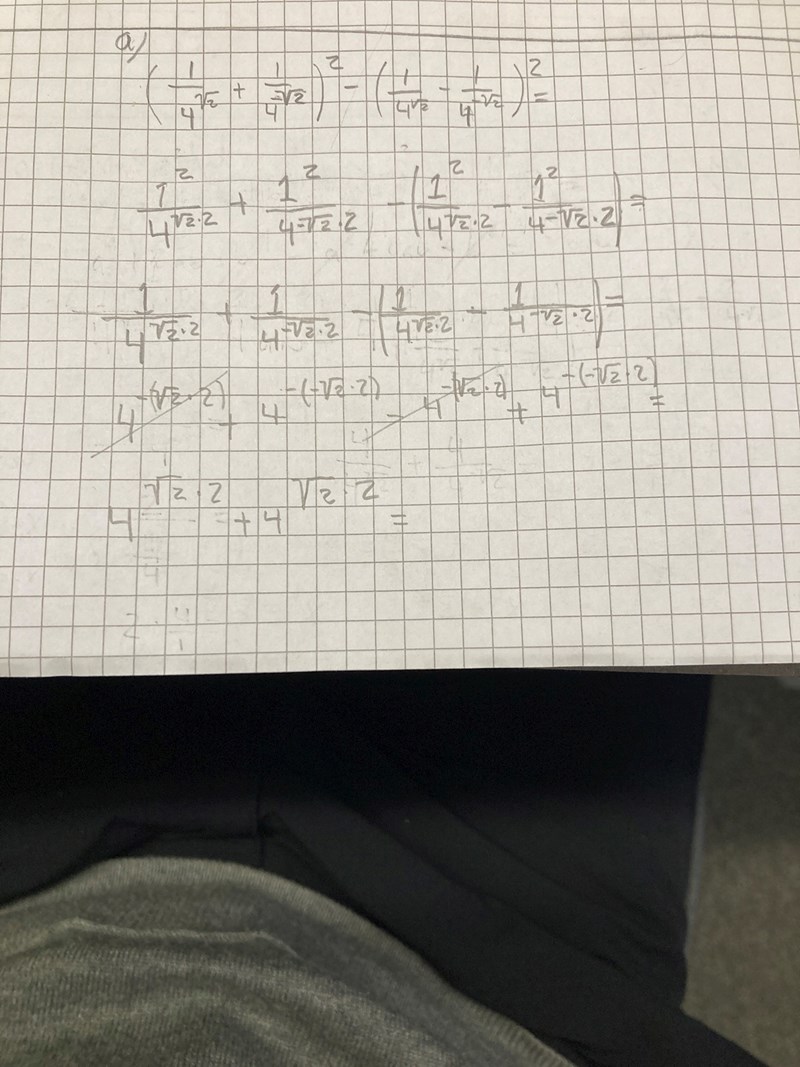 a)
(1/4^√2 + 1/4^-√2)^2 - (1/4^√2 - 1/4^-√2)^2 =
1^2/4^√2·2 + 1^2/4^-√2·2 - (1^2/4^√2·2 - 1^2/4^-√2·2) =
1/4^√2·2 + 1/4^-√2·2 - (1/4^√2·2 - 1/4^-√2·2) =
4^-(√2·2) + 4^-(-√2·2) - 4^-(√2·2) + 4^-(-√2·2) =
4^√2·2 + 4^√2·2 =